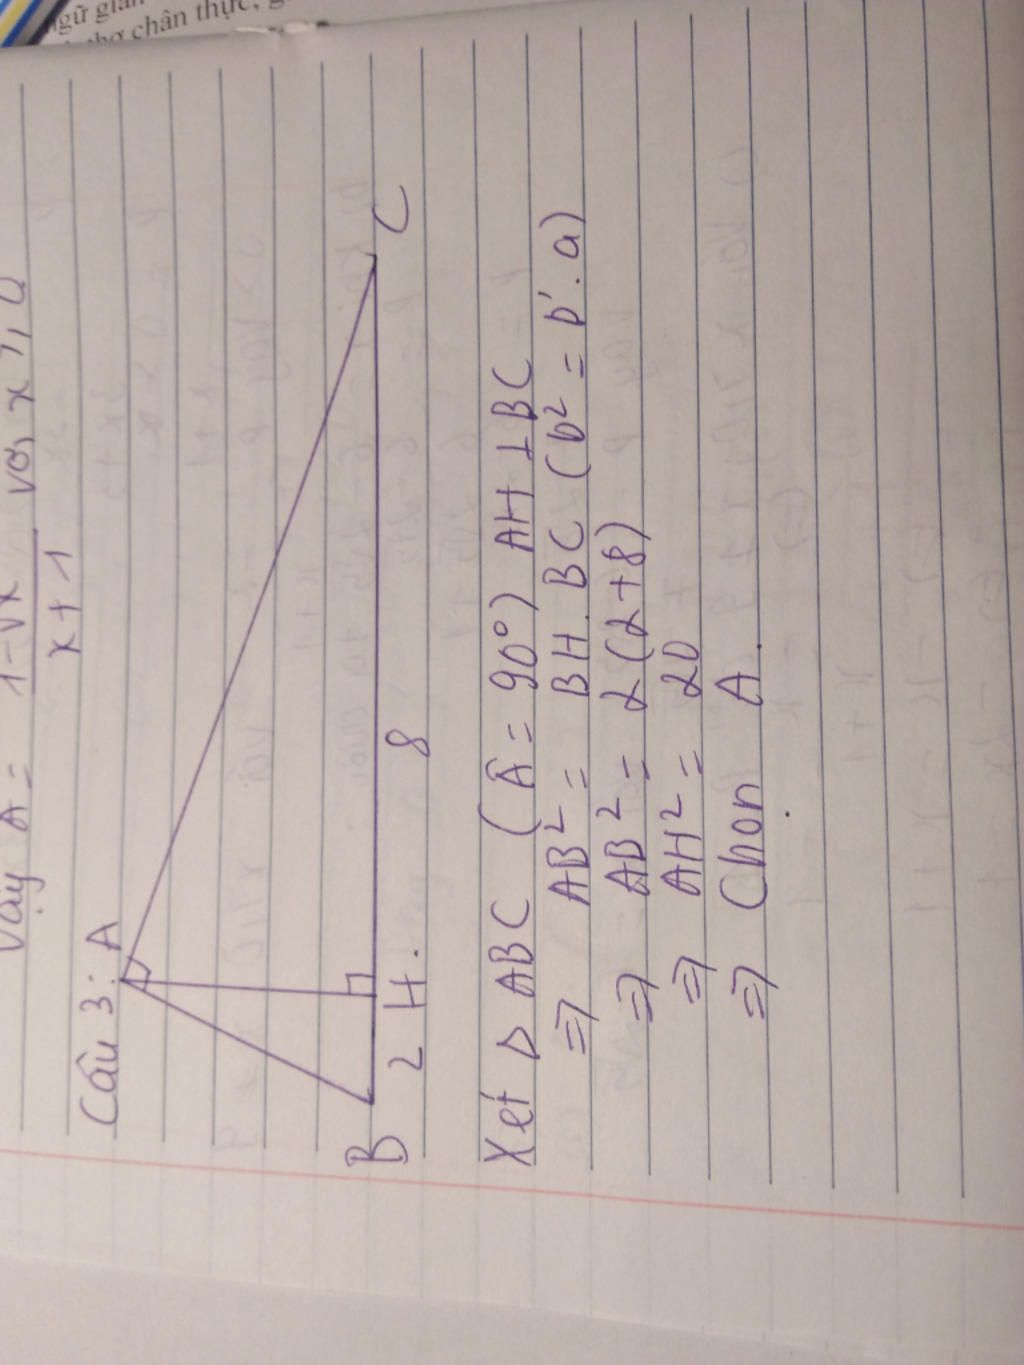 ngữ gian
thơ chân thực,
Vậy A = 1-√x / x+1 với x ≥ 0
Câu 3:
A
B 2 H. 8 C
Xét Δ ABC (Â = 90°) AH ⊥ BC
⇒ AB² = BH. BC (b² = b'. a)
⇒ AB² = 2(2+8)
⇒ AH² = 20
⇒ Chọn A.